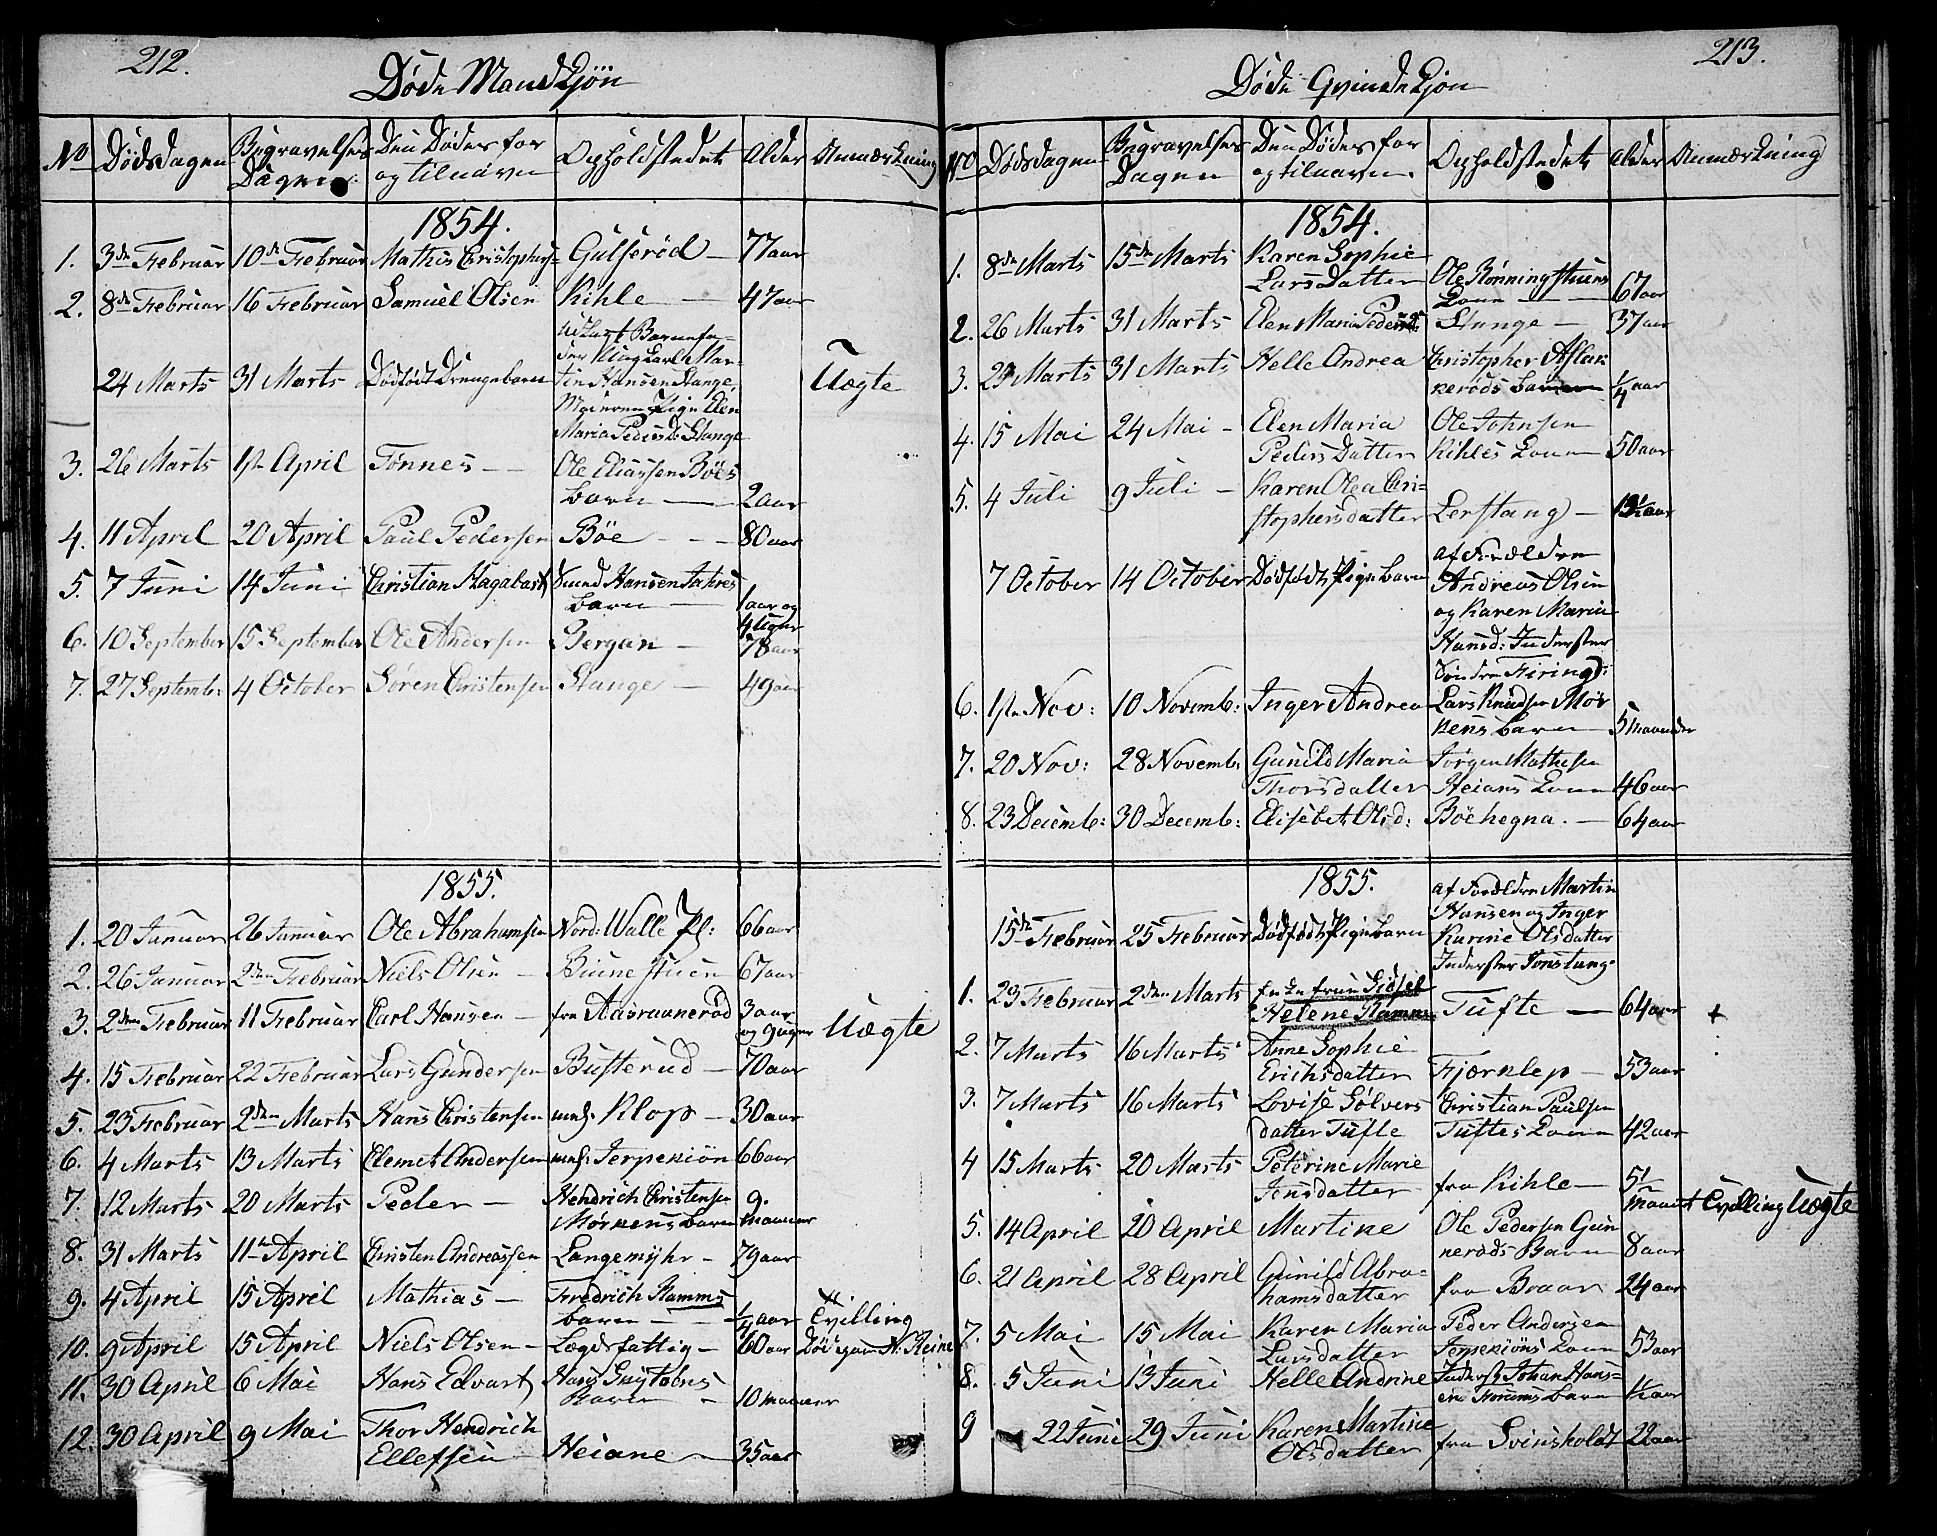 212.
Døde Mandkjøn
No Dødsdagen Begravelses Dagen Den Dødes for og tilnavn Opholdstedet Alder Anmærkning
1854.
1. 3de Februar 10de Februar Mathis Christophers- Gulserød 77 aar
2. 8de Februar 16 Februar Samuel Olsen Kihle 47 aar
24 Marts 31 Marts Dødfødt Drengebarn Udlagt Barnefader Ung Carl Martin Hansen Stange, Moderen Pige Elen Maria Pedersd: Stange Uægte
3. 26 Marts 1ste April Tønnes Ole Eliassen Böes barn 2 aar
4. 11 April 20 April Paul Pedersen Böe 80 aar
5. 7 Juni 14 Juni Christian Hansen Jahres barn 1 aar og 4 Uger
6. 10 September 15 September Ole Andersen Bergan 78 aar
7. 27 Septemb: 4 October Sören Christensen Stange 49 aar
1855.
1. 20 Januar 26 Januar Ole Abrahamsen Nord: Walle Pl: 66 aar
2. 26 Januar 2den Februar Niels Olsen 67 aar
3. 2den Februar 11 Februar Carl Hansen fra Aasravnerød 3 aar og 9 uger Uægte
4. 15 Februar 22 Februar Lars Gundersen Busterud 70 aar
5. 23 Februar 2den Marts Hans Christensen Klop 30 aar
6. 4 Marts 13 Marts Clemet Andersen Jerpekiön 66 aar
7. 12 Marts 20 Marts Peder Hendrich Christensen Mørkens barn 9. maaneder
8. 31 Marts 11te April Christen Andreassen Langemyhr 79 aar
9. 4 April 15 April Mathias Fredrich Stamms barn 1/4 aar Tvilling
10. 9 April 15 April Niels Olsen Lægdsfattig 60 aar
11. 30 April 6 Mai Hans Edvart 10 maaneder
12. 30 April 9 Mai Thor Hendrich Ellefsen Heiane 35 aar
213.
Døde Qvindekjøn
No Dødsdagen Begravelses Dagen Den Dødes for og tilnavn. Opholdstedet Alder Anmærkning
1854.
1. 8de Marts 15de Marts Karen Sophie Larsdatter Ole Rønningstuens Kone 67 aar
2. 26 Marts 31 Marts Elen Maria Pedersd: Stange 37 aar
3. 29 Marts 31 Marts Helle Andrea Christopher Aflakkerøds barn 1/4 aar
4. 15 Mai 24 Mai Elen Maria Peders Datter Ole Johnsen Kihles Kone 50 aar
5. 4 Juli 9 Juli Karen Olea Christophersdatter Lerstang
7 October 14 October Dødfødt Pigebarn af Forældre Andreas Olsen og Karen Maria Hansd: Inderster Søndre Firing
6. 1ste Nov: 10 Novemb: Inger Andrea Lars Knudsen Mørkens barn 5 maaneder
7. 20 Nov: 28 Novemb: Gunild Maria Thorsdatter Jørgen Mathesen Heians Kone 46 aar
8. 23 Decemb: 30 Decemb: Elisebet Olsd: Böehegna. 64 aar
1855.
15de Februar 25 Februar Dødfødt Pigebarn af Forældre Martin Hansen og Inger Karine Olsdatter Inderster Jonstang.
1. 23 Februar 2den Marts Enkefrue Sidsel Helene Stamm Tufte 64 aar +
2. 7 Marts 16 Marts Anne Sophie Erichsdatter Fjærnlep 53 aar
3. 7 Marts 16 Marts Lovise Sølvers datter Tufte Christian Paulsen Tuftes Kone 42 aar
4 15 Marts 20 Marts Peterine Marie Jensdatter fra Kihle Tvilling Uægte
5. 14 April 20 April Martine Ole Pedersen Gunnerøds Barn 8 aar
6. 21 April 28 April Gunild Abrahamsdatter fra Braar 24 aar
7. 5 Mai 15 Mai Karen Maria Larsdatter Peder Andersen Jerpekiöns Kone 53 aar
8. 5 Juni 13 Juni Helle Andrine Inderst Johan Hansen barn 1/2 aar
9 22 Juni 29 Juni Karen Martine Olsdatter fra Svinsholdt 22 aar